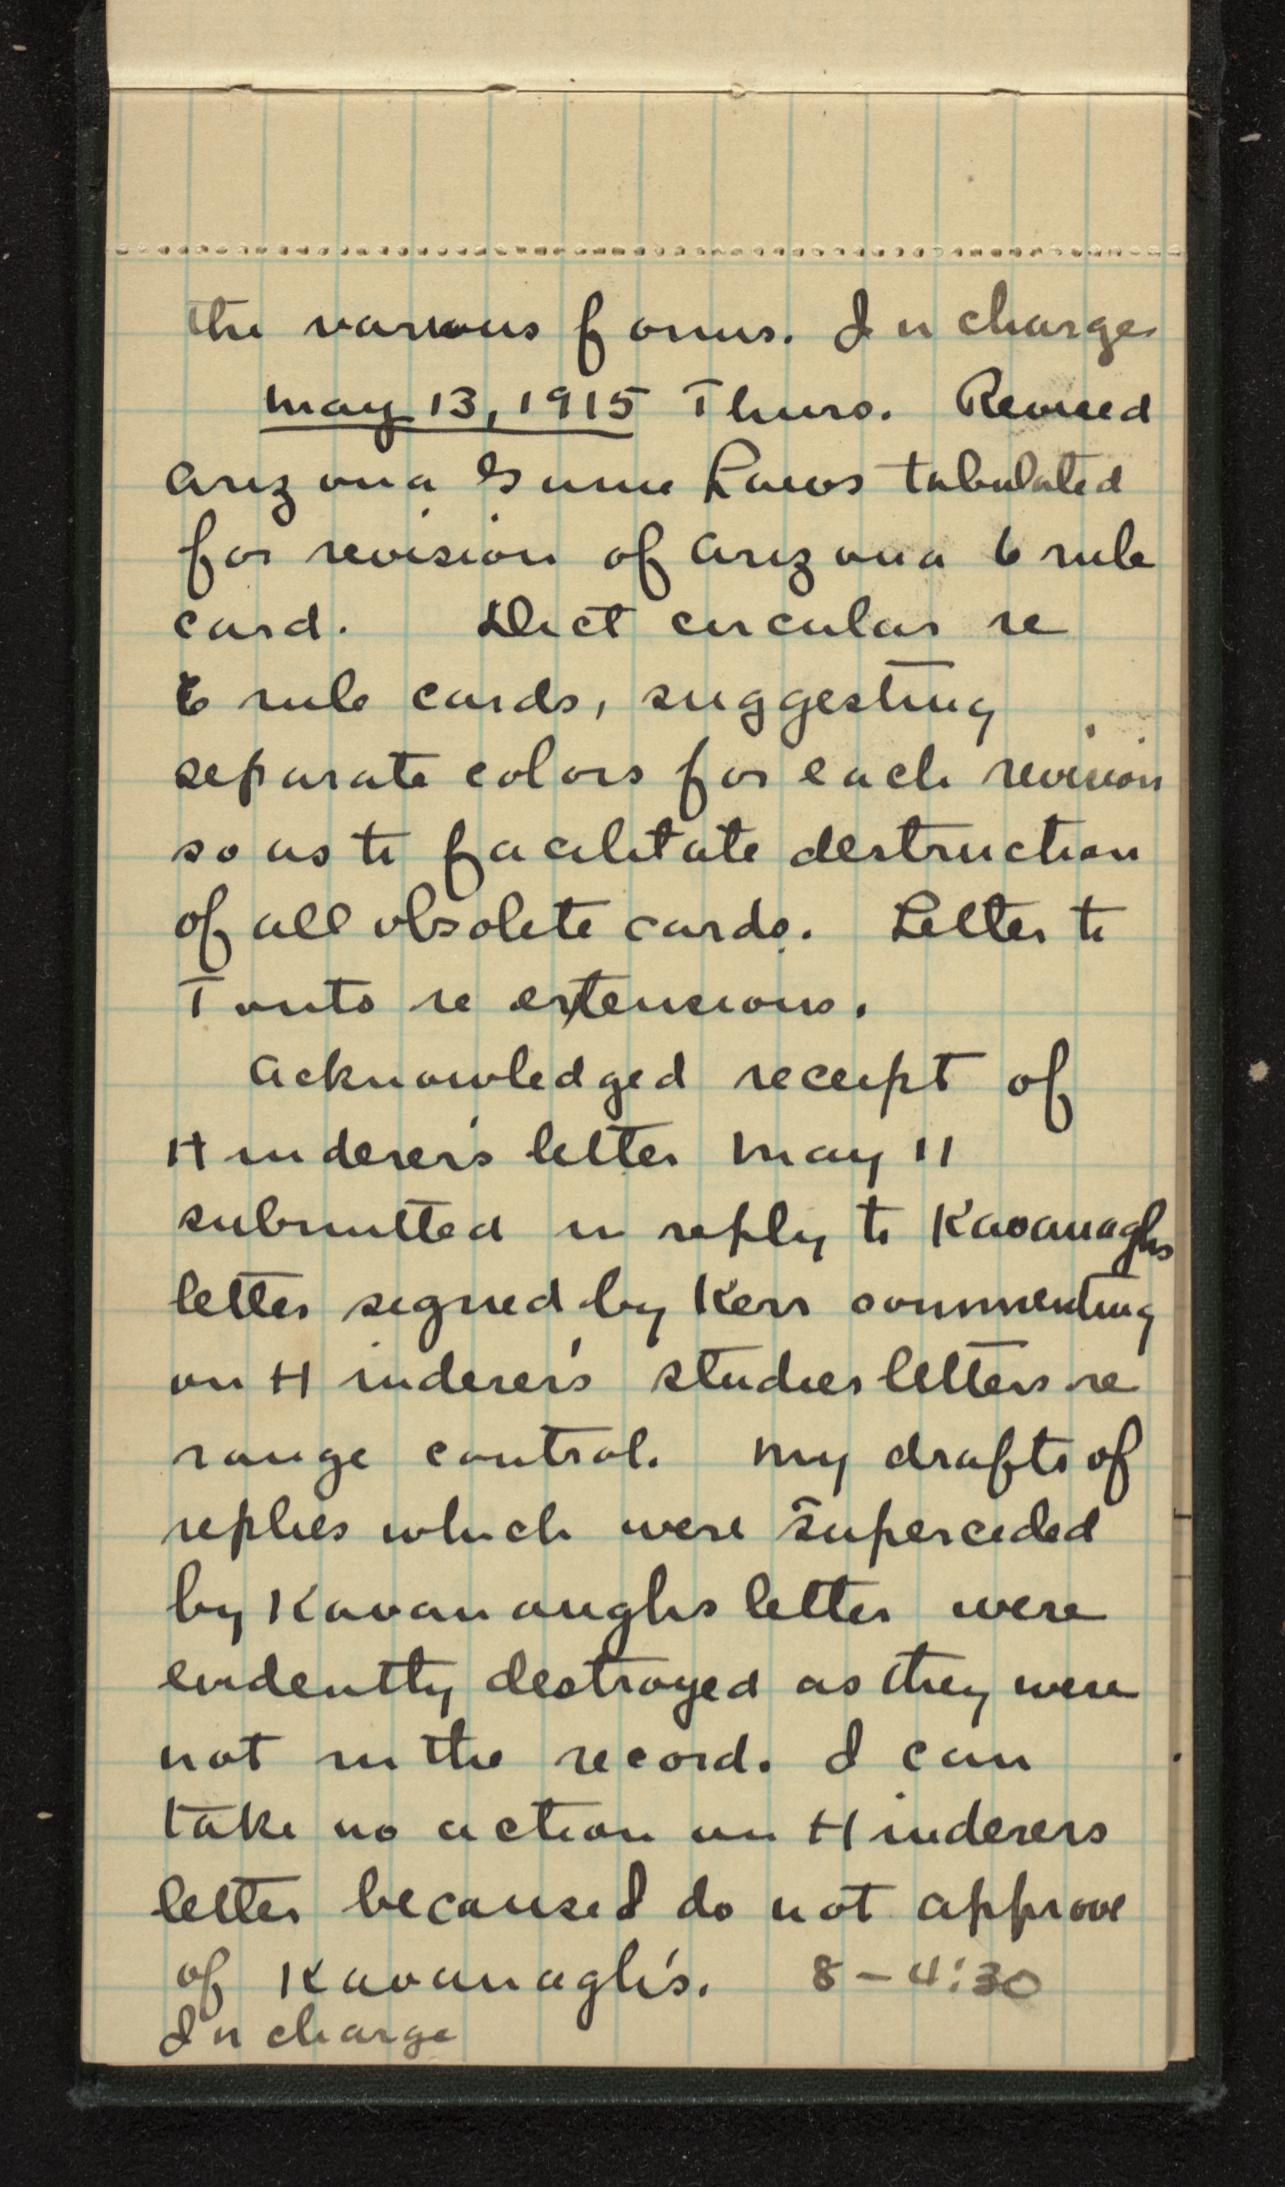 the various forms. In charge
May 13, 1915 Thurs. Revised
Arizona Game Laws tabulated
for revision of Arizona 6 rule
card. Dict circular re
6 rule cards, suggesting
separate colors for each revision
so as to facilitate destruction
of all obsolete cards. Letter to
Tonto re extensions.
Acknowledged receipt of
Hinderer's letter May 11
submitted in reply to Kavanaghs
letter signed by Kerr commenting
on Hinderer's studies letters re
range control. My drafts of
replies which were superceded
by Kavanaughs letter were
evidently destroyed as they were
not in the record. I can
take no action on Hinderers
letter because I do not approve
of Kavanagh's. 8 - 4:30
In charge